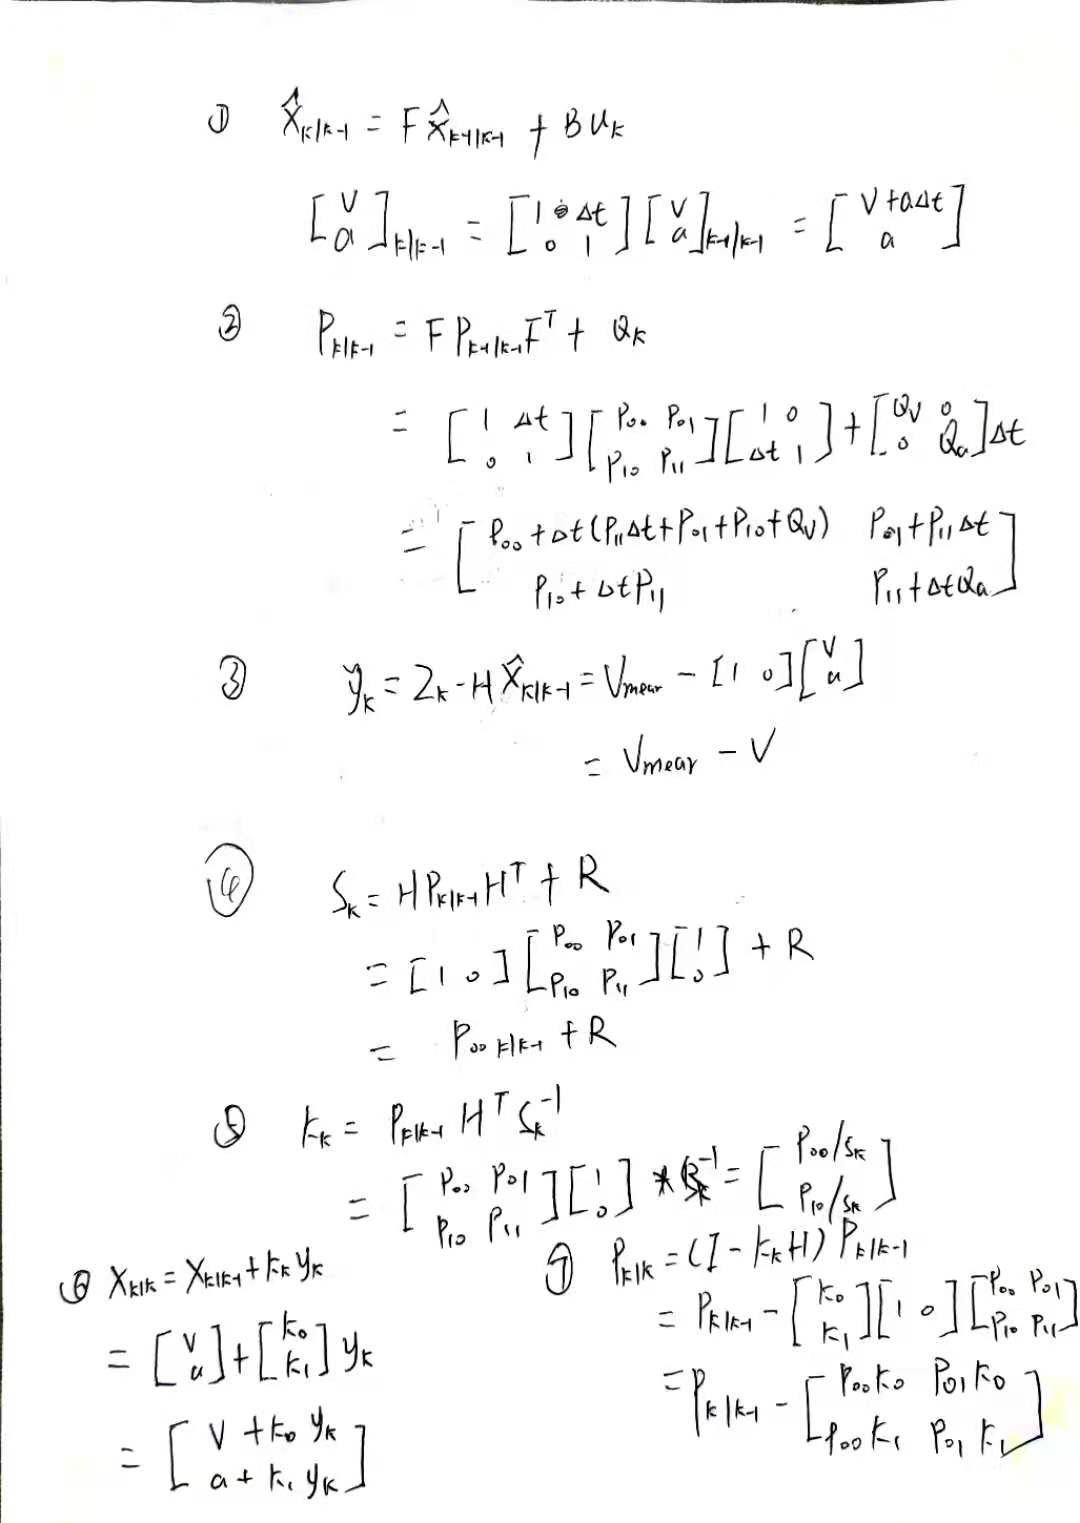 ① X̂ₖ|ₖ₋₁ = F X̂ₖ₋₁|ₖ₋₁ + B Uₖ
[V; a]ₖ|ₖ₋₁ = [1 Δt; 0 1] [V; a]ₖ₋₁|ₖ₋₁ = [V+aΔt; a]
② Pₖ|ₖ₋₁ = F Pₖ₋₁|ₖ₋₁ Fᵀ + Qₖ
= [1 Δt; 0 1] [P₀₀ P₀₁; P₁₀ P₁₁] [1 0; Δt 1] + [Qv 0; 0 Qa] Δt
= [P₀₀+Δt(P₁₁Δt+P₀₁+P₁₀+Qv) P₀₁+P₁₁Δt; P₁₀+ΔtP₁₁ P₁₁+ΔtQa]
③ ỹₖ = Zₖ - H X̂ₖ|ₖ₋₁ = Vmear - [1 0] [V; a]
= Vmear - V
④ Sₖ = H Pₖ|ₖ₋₁ Hᵀ + R
= [1 0] [P₀₀ P₀₁; P₁₀ P₁₁] [1; 0] + R
= P₀₀ₖ|ₖ₋₁ + R
⑤ Kₖ = Pₖ|ₖ₋₁ Hᵀ Sₖ⁻¹
= [P₀₀ P₀₁; P₁₀ P₁₁] [1; 0] * Sₖ⁻¹ = [P₀₀/Sₖ; P₁₀/Sₖ]
⑥ Xₖ|ₖ = Xₖ|ₖ₋₁ + Kₖ yₖ
= [V; a] + [K₀; K₁] yₖ
= [V + K₀ yₖ; a + K₁ yₖ]
⑦ Pₖ|ₖ = (I - KₖH) Pₖ|ₖ₋₁
= Pₖ|ₖ₋₁ - [K₀; K₁] [1 0] [P₀₀ P₀₁; P₁₀ P₁₁]
= Pₖ|ₖ₋₁ - [P₀₀K₀ P₀₁K₀; P₀₀K₁ P₀₁K₁]